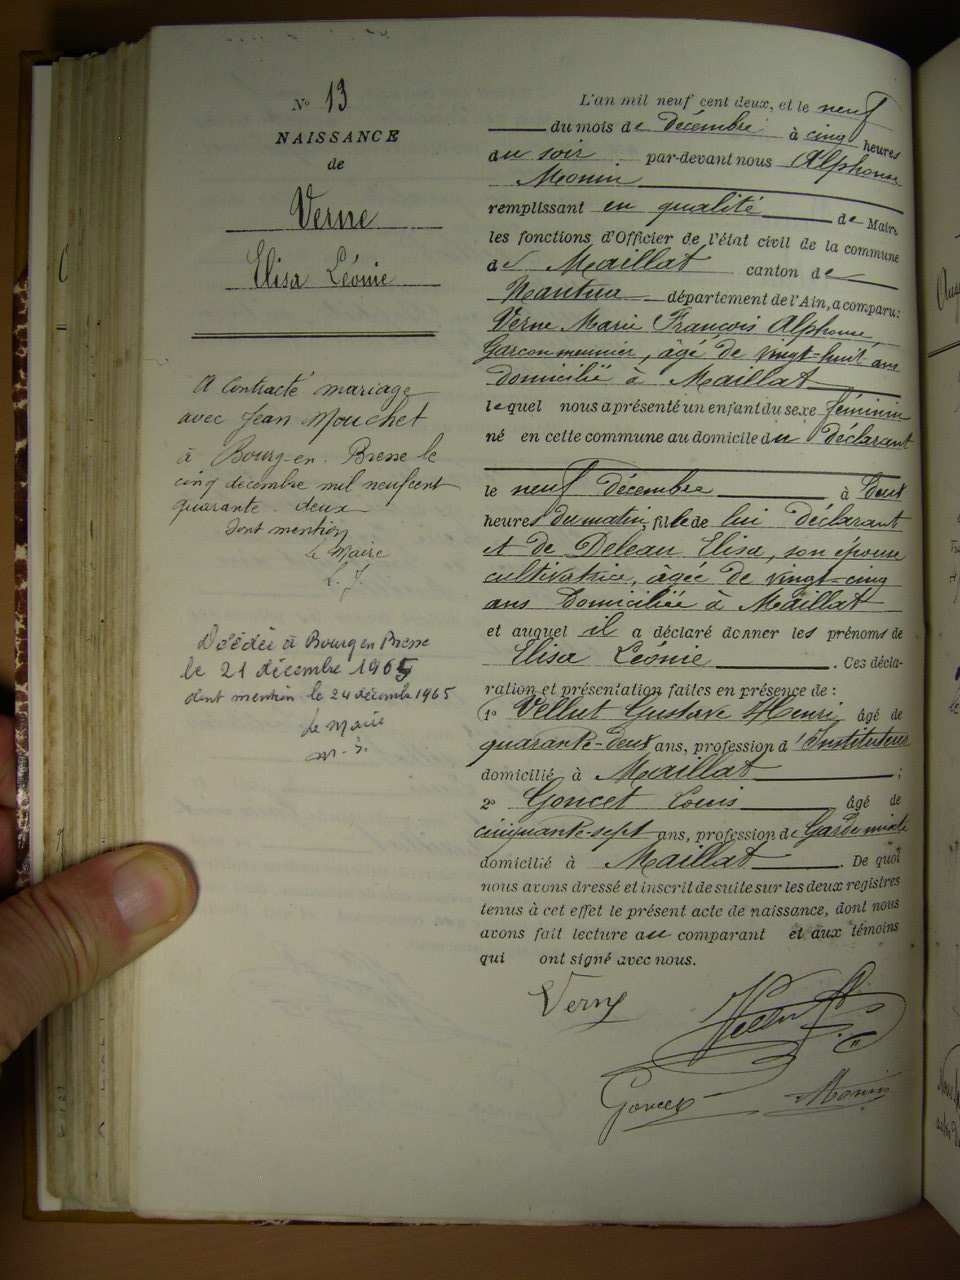 N° 13
NAISSANCE
de
Verne
Elisa Léonie
A contracté mariage
avec Jean Mouchet
à Bourg-en-Bresse le
cinq décembre mil neuf cent
quarante-deux
Dont mention
Le Maire
Décédée à Bourg en Bresse
le 21 décembre 1965
dont mention le 24 décembre 1965
Le Maire
L'an mil neuf cent deux, et le neuf
du mois de Décembre à cinq heures
du soir par-devant nous Alphonse
Monin
remplissant en qualité de Maire
les fonctions d'Officier de l'état civil de la commune
de Maillat canton de
Nantua département de l'Ain, a comparu:
Verne Marie François Alphonse,
Garçon meunier, âgé de vingt-huit ans
domicilié à Maillat
lequel nous a présenté un enfant du sexe féminin
né en cette commune au domicile du Déclarant
le neuf Décembre à Deux
heures du matin, fille de lui déclarant
et de Deleau Elisa, son épouse
cultivatrice, âgée de vingt-cinq
ans Domiciliée à Maillat
et auquel il a déclaré donner les prénoms de
Elisa Léonie. Ces décla-
ration et présentation faites en présence de :
1° Vellut Gustave Henri, âgé de
quarante-deux ans, profession d'Instituteur
domicilié à Maillat ;
2° Goncet Louis âgé de
cinquante-sept ans, profession de
domicilié à Maillat. De quoi
nous avons dressé et inscrit de suite sur les deux registres
tenus à cet effet le présent acte de naissance, dont nous
avons fait lecture au comparant et aux témoins
qui ont signé avec nous.
Verne
Vellut
Goncet Monin